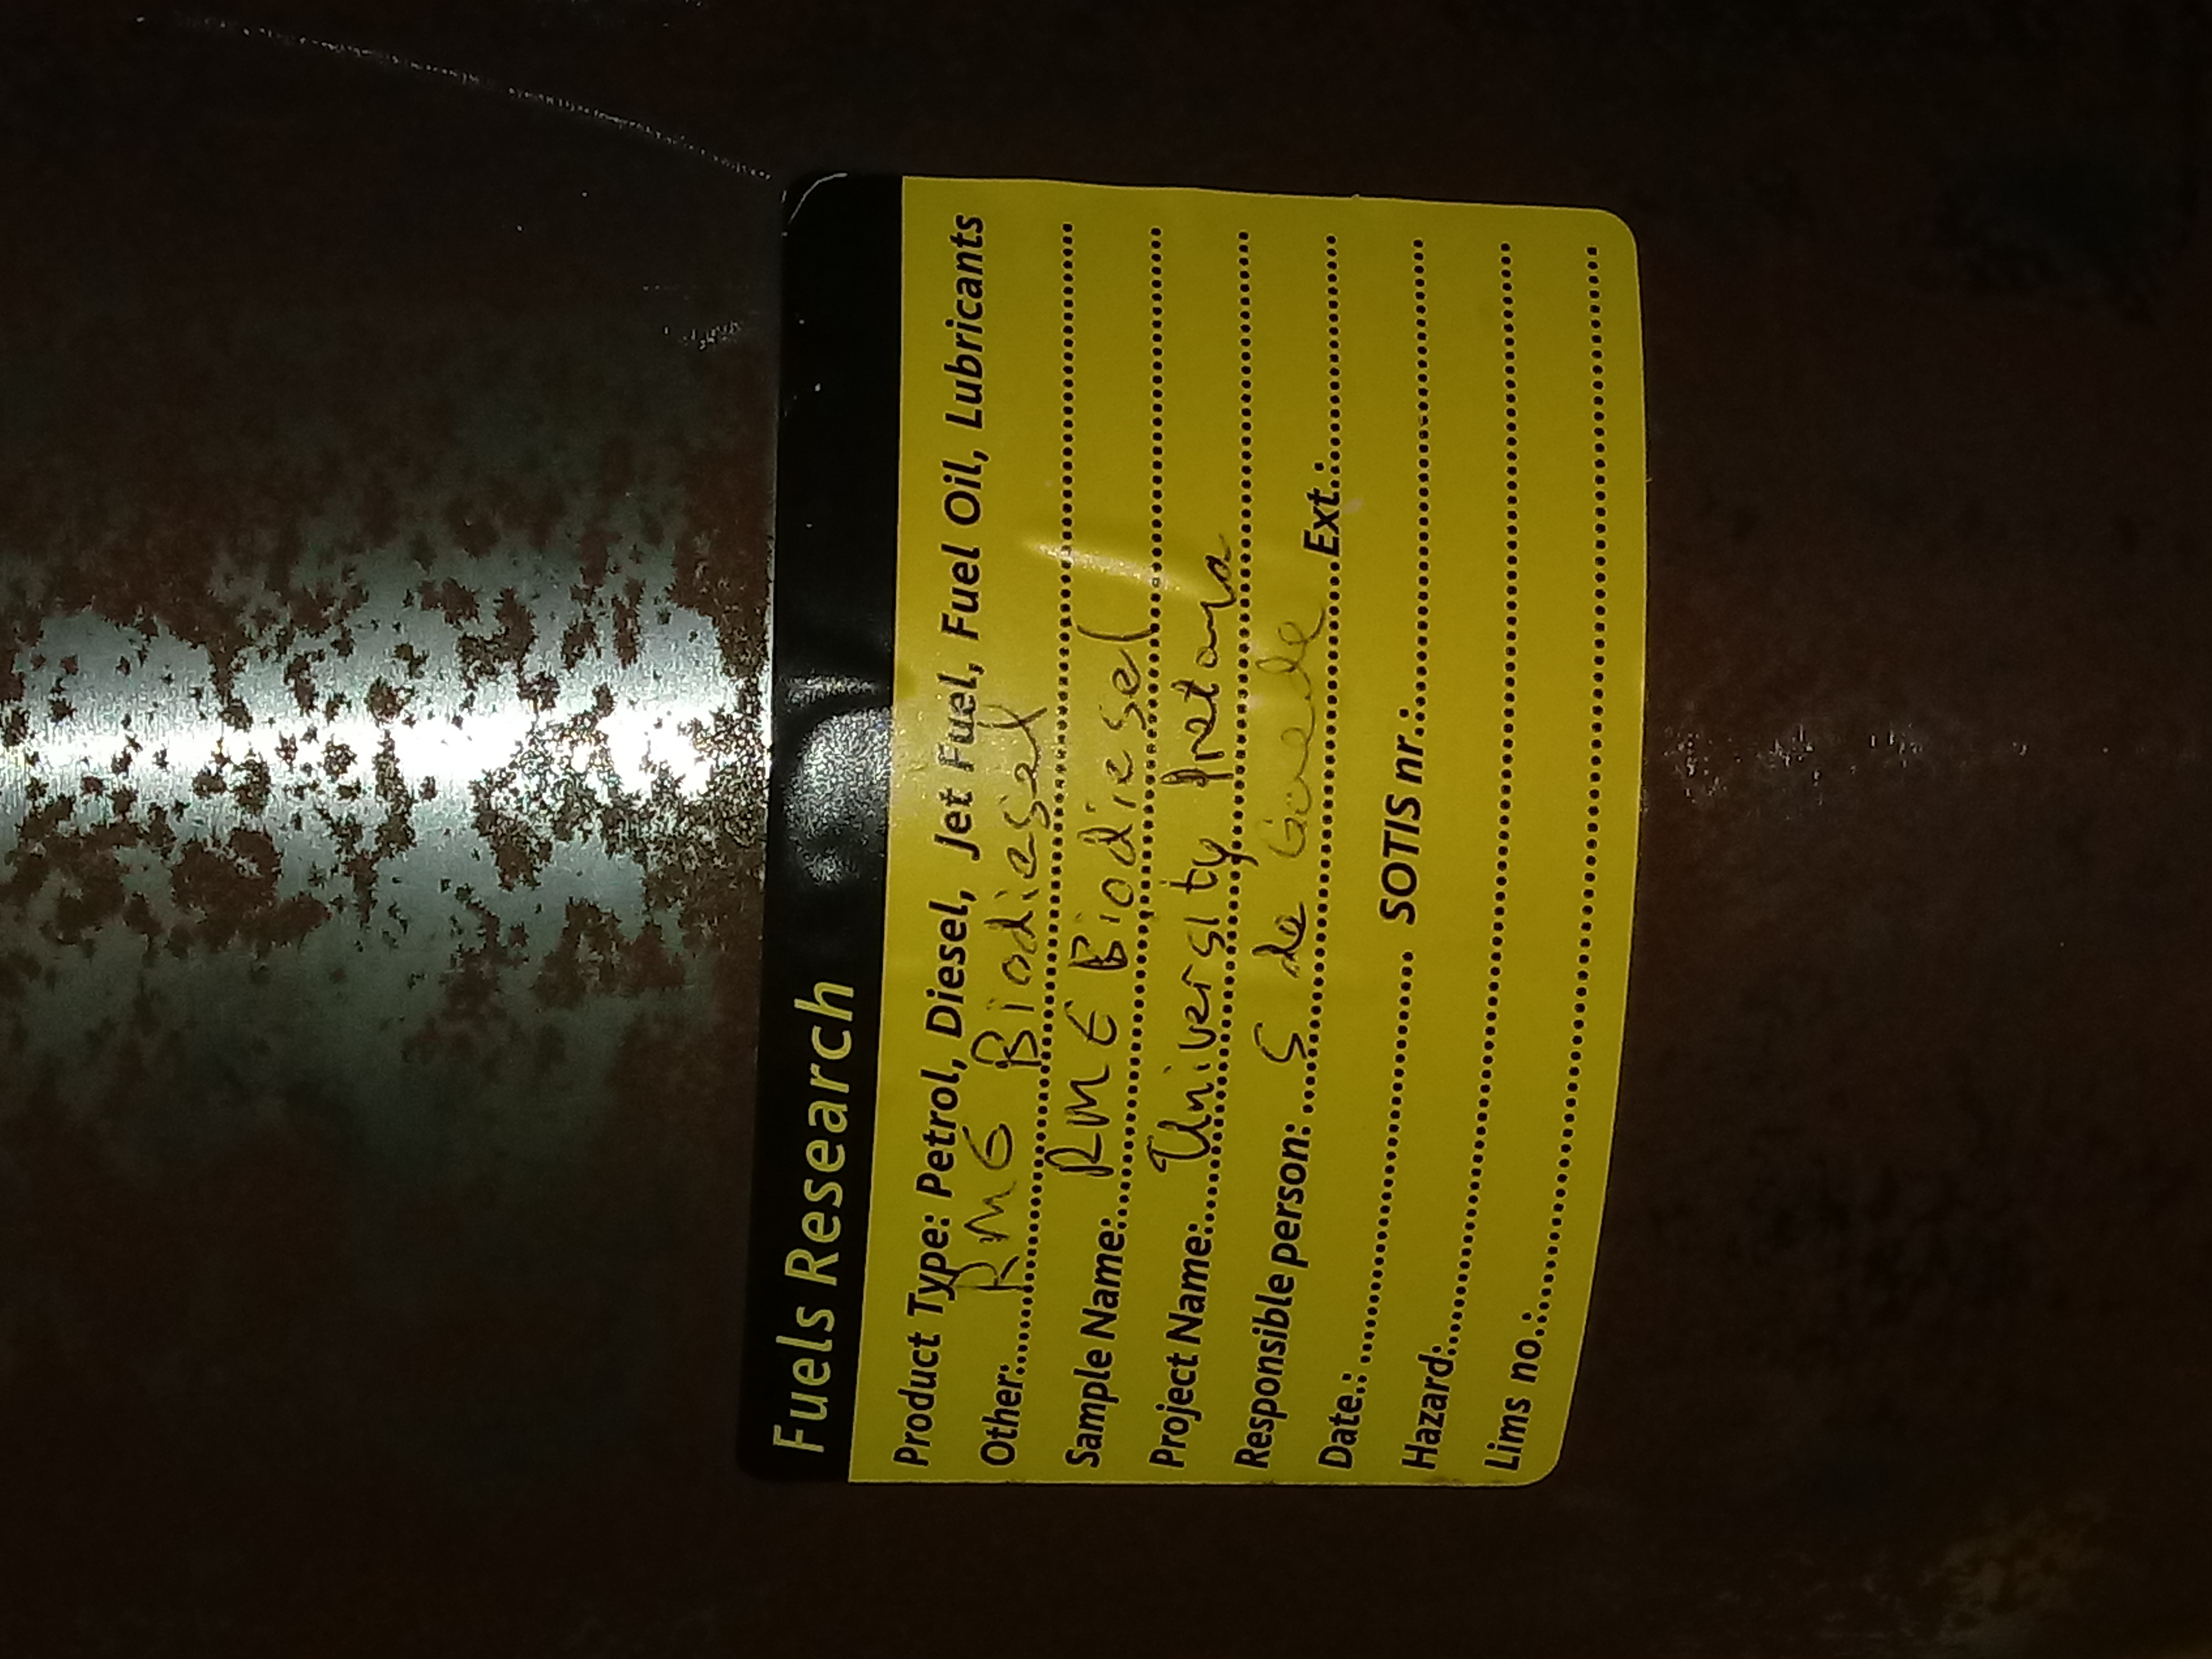 Fuels Research
Product Type: Petrol, Diesel, Jet Fuel, Fuel Oil, Lubricants
Other:..... RME Biodiesel
Sample Name:..... RME Biodiesel
Project Name:..... University Pretoria
Responsible person: ..... S de Goede .....Ext.:.....
Date.: ..... SOTIS nr.:.....
Hazard:.....
Lims no.:.....